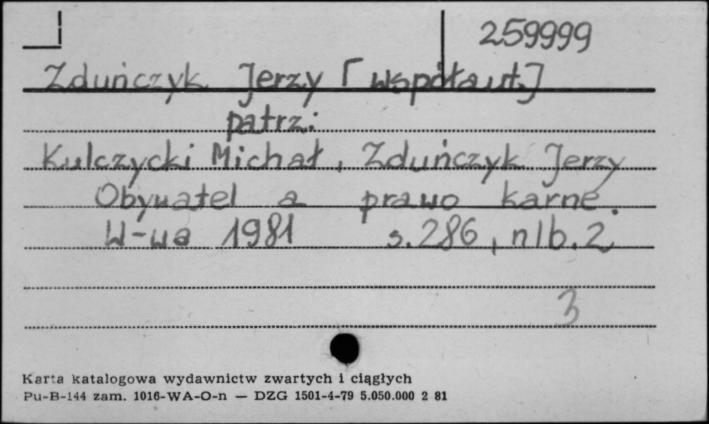 259999
Zduńczyk Jerzy [współaut.]
patrz:
Kulczycki Michał, Zduńczyk Jerzy
Obywatel a prawo karne.
W-wa 1981 s. 286, nlb. 2
3
Karta katalogowa wydawnictw zwartych i ciągłych
Pu-B-144 zam. 1016-WA-O-n — DZG 1501-4-79 5.050.000 2 81